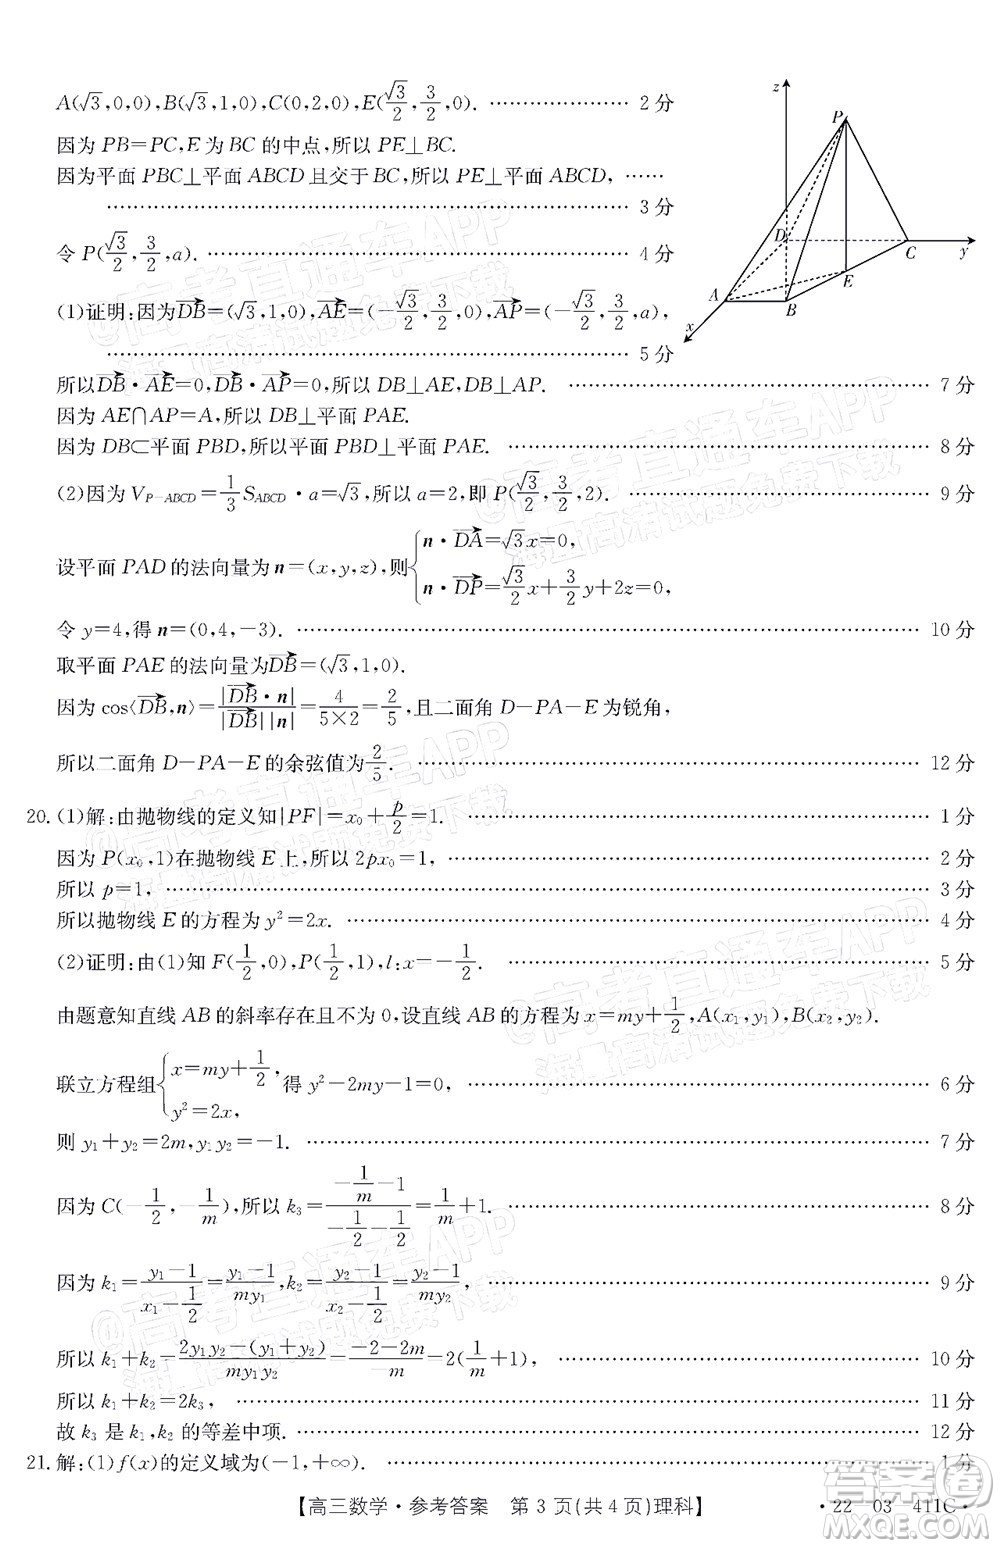 A(√3,0,0),B(√3,1,0),C(0,2,0),E(√3/2,3/2,0). …………………… 2分
因为 PB=PC,E 为 BC 的中点,所以 PE⊥BC.
因为平面 PBC⊥平面 ABCD 且交于 BC,所以 PE⊥平面 ABCD, ……
…………………………………………………………… 3分
令 P(√3/2,3/2,a). ………………………………………… 4分
(1)证明:因为DB→=(√3,1,0),AE→=(-√3/2,3/2,0),AP→=(-√3/2,3/2,a),
…………………………………………………………… 5分
所以DB→·AE→=0,DB→·AP→=0,所以 DB⊥AE,DB⊥AP. …………………… 7分
因为 AE∩AP=A,所以 DB⊥平面 PAE.
因为 DB⊂平面 PBD,所以平面 PBD⊥平面 PAE. …………………… 8分
(2)因为 V_{P-ABCD}=1/3 S_{ABCD}·a=√3,所以 a=2,即 P(√3/2,3/2,2). …………………… 9分
设平面 PAD 的法向量为 n=(x,y,z),则{n·DA→=√3x=0,
n·DP→=√3/2 x+3/2 y+2z=0,
令 y=4,得 n=(0,4,-3). …………………… 10分
取平面 PAE 的法向量为DB→=(√3,1,0).
因为 cos⟨DB→,n⟩=|DB→·n|/|DB→||n|=4/(5×2)=2/5,且二面角 D-PA-E 为锐角,
所以二面角 D-PA-E 的余弦值为2/5. …………………… 12分
20.(1)解:由抛物线的定义知|PF|=x₀+p/2=1. …………………… 1分
因为 P(x₀,1)在抛物线 E 上,所以 2px₀=1, …………………… 2分
所以 p=1, …………………… 3分
所以抛物线 E 的方程为 y²=2x. …………………… 4分
(2)证明:由(1)知 F(1/2,0),P(1/2,1),l:x=-1/2. …………………… 5分
由题意知直线 AB 的斜率存在且不为 0,设直线 AB 的方程为 x=my+1/2,A(x₁,y₁),B(x₂,y₂).
联立方程组{x=my+1/2, y²=2x, 得 y²-2my-1=0, …………………… 6分
则 y₁+y₂=2m,y₁y₂=-1. …………………… 7分
因为 C(-1/2,-1/m),所以 k₃=(-1/m-1)/(-1/2-1/2)=1/m+1. …………………… 8分
因为 k₁=(y₁-1)/(x₁-1/2)=(y₁-1)/my₁,k₂=(y₂-1)/(x₂-1/2)=(y₂-1)/my₂, …………………… 9分
所以 k₁+k₂=(2y₁y₂-(y₁+y₂))/my₁y₂=(-2-2m)/-m=2(1/m+1), …………………… 10分
所以 k₁+k₂=2k₃, …………………… 11分
故 k₃ 是 k₁,k₂ 的等差中项. …………………… 12分
21.解:(1)f(x)的定义域为(-1,+∞). …………………… 1分
【高三数学·参考答案 第3页(共4页)理科】
·22-03-411C·
z
P
D
C
y
E
A
B
x
@高考直通车APP
海量高清试题免费下载
@高考直通车APP
海量高清试题免费下载
@高考直通车APP
海量高清试题免费下载
@高考直通车APP
海量高清试题免费下载
@高考直通车APP
海量高清试题免费下载
答案圈
MXQE.COM